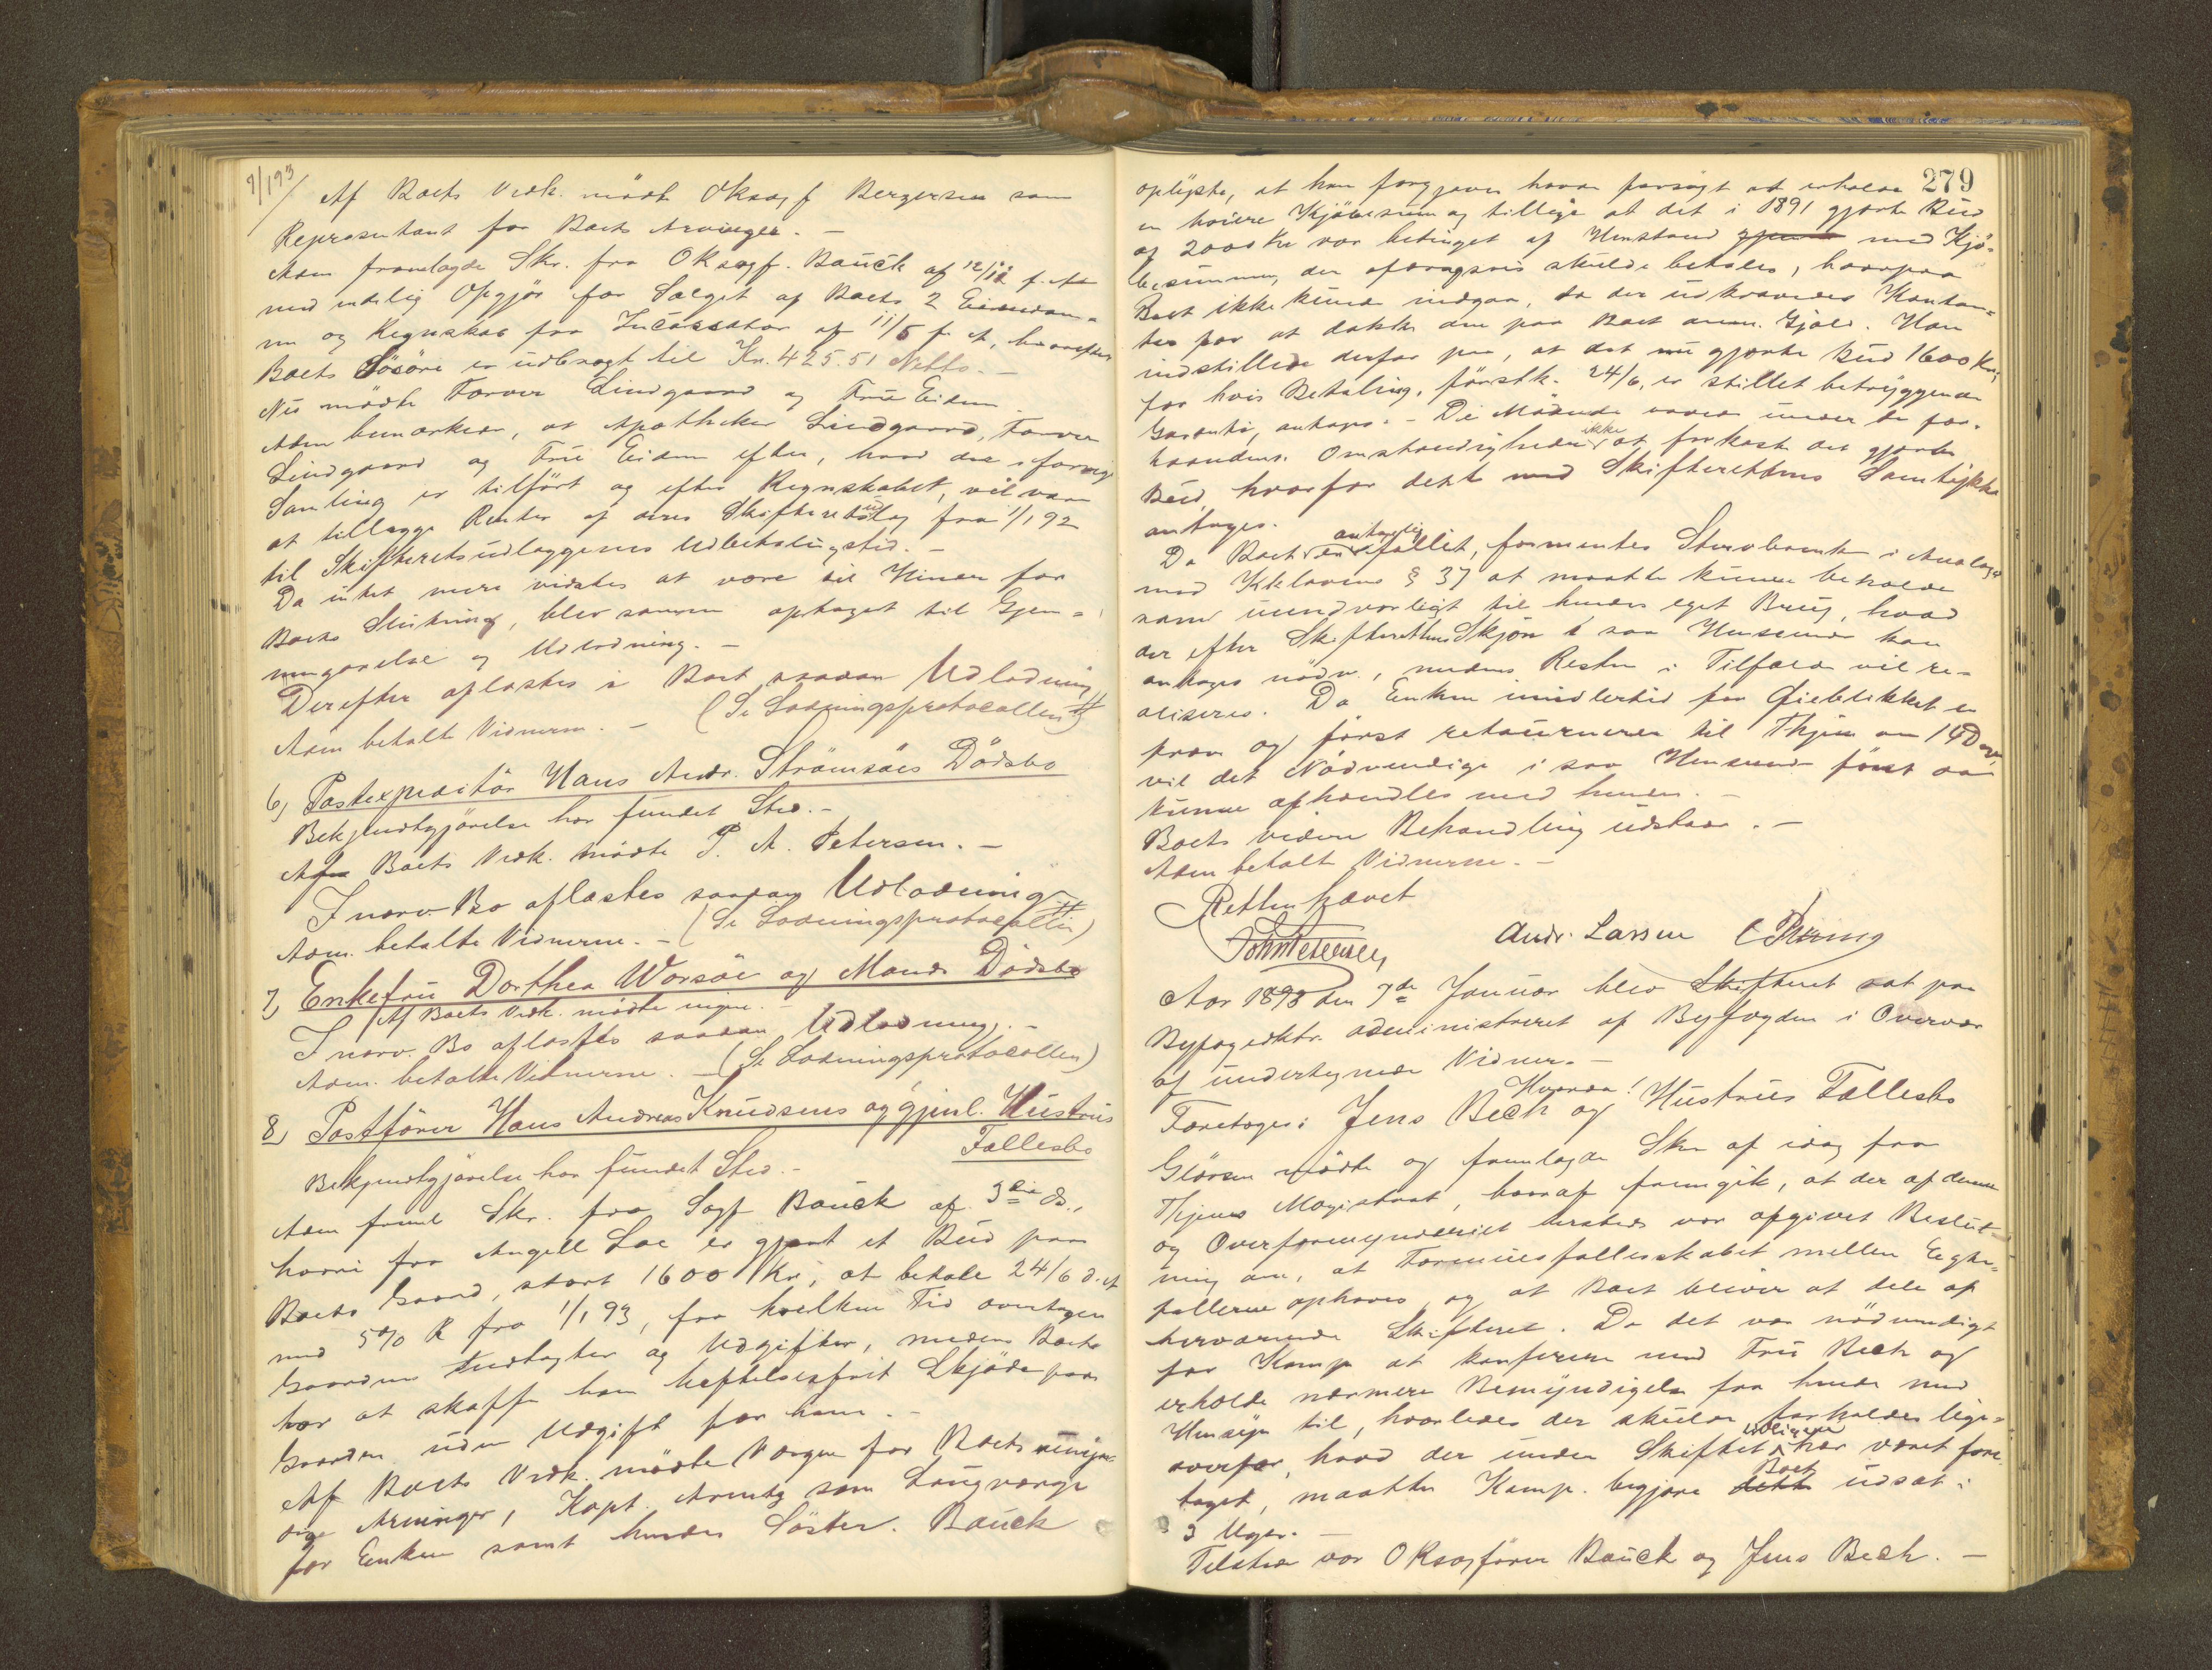 9/1 93
Af Boets Vedk. mødte Oksagf Bergersen som
Repræsentant for Boets Arvinger. –
Adm fremlagde Skr. fra Oksagf. Bauck af 12/12 f. A
med endelig Opgjør for Salget af Boets 2 Eiendom=
me og Regnskab fra Incassator af 11/5 f A, hvorefter
Boets Løsøre er udbragt til Kr. 425.51 Netto. –
Nu mødte Farver Lindgaard og Frue Eidem.
Adm bemærkede, at Apotheker Lindgaard, Farver
Lindgaard og Frue Eidem efter, hvad der i forrige
Samling er tilført og efter Regnskabet, vil være
at tillægge Renter af deres Skifteretsudlæg fra 1/1 92
til Skifteretsudlæggenes Udbetalingstid. –
Da intet mere vidstes at være til Hinder for
Boets Slutning, blev samme optaget til Gjen=
nemgaaelse og Udlodning. –
Derefter aflæstes i Boet saadan Udlodning #
Adm betalte Vidnerne. – (Se Lodningsprotocollen #)
6) Postexpeditør Hans Andr. Strømsøes Dødsbo
Bekjendtgjørelse har fundet Sted. –
Af Boets Vedk. mødte P. A. Petersen. –
I nærv. Bo aflæstes saadan Udlodning #
Adm. betalte Vidnerne. – (Se Lodningsprotocollen)
7) Enkefru Dorthea Worsøe og Mands Dødsbo
Af Boets Vedk. mødte ingen. –
I nærv. Bo aflæstes saadan Udlodning. –
Adm. betalte Vidnerne. – (Se Lodningsprotocollen)
8) Postfører Hans Andreas Knudsens og gjenl. Hustrus
Fællesbo
Bekjendtgjørelse har fundet Sted. –
Adm freml Skr. fra Sagf Bauck af 3die ds.,
hvori fra Angell Loe er gjort et Bud paa
Boets Gaard, stort 1600 Kr, at betale 24/6 d. A
med 5% R fra 1/1 93, fra hvilken Tid overtages
Gaardens Indtægter og Udgifter, medens Boet
har at skaffe ham heftelsesfrit Skjøde paa
Gaarden uden Udgift for ham. –
Af Boets Vedk. mødte Værgen for Boets umyn=
dige Arvinger, Kapt. Arentz som Laugværge
for Enken samt hendes Søster. Bauck
279
oplyste, at han forgjæves havde forsøgt at erholde
en høiere Kjøbesum og tillige at det i 1891 gjorte Bud
af 2000 Kr var betinget af Henstand med Kjø=
besummen, der afdragsvis skulde betales, hvorpaa
Boet ikke kunde indgaa, da der udkrævedes Kontan=
ter for at dække den paa Boet anm. Gjæld. Han
indstillede derfor paa, at det nu gjorte Bud 1600 Kr,
for hvis Betaling, førstk. 24/6, er stillet betryggende
Garanti, antages. – De Mødende vovede under de for=
haanden. Omstændigheder ikke at forkaste det gjorte
Bud, hvorfor dette med Skifterettens Samtykke
antages.
Da Boet er antagelig fallit, formentes Stervboenken i Analogi
med Kklovens § 37 at maatte kunne beholde
som uundværligt til hendes eget Brug, hvad
der efter Skifterettens Skjøn i saa Henseende kan
antages nødv., medens Resten i Tilfælde vil re=
aliseres. Da Enken imidlertid for Øieblikket er
fravær og først returnerer til Thjem om 14 Dage,
vil det Nødvendige i saa Henseende først da
kunne afhandles med hende. –
Boets videre Behandling udstaar. –
Adm betalte Vidnerne. –
Retten hævet
Andr. Larsen
Aar 1893 den 7de Januar blev Skifteret sat paa
Byfogedktr. administreret af Byfogden i Overvær
af undertegnede Vidner. –
Hvorda!
Foretoges: Jens Bech og Hustrus Fællesbo
mødte og fremlagde Skr af idag fra
Thjems Magistrat, hvoraf fremgik, at der af denne
og Overformynderiet hersteds var afgivet Beslut=
ning om, at Formuesfællesskabet mellem Ægte=
fællerne ophæves og at Boet bliver at dele af
herværende Skifteret. Da det var nødvendigt
for Kamp at konferere med Fru Bech og
erholde nærmere Bemyndigelse fra hende med
Hensyn til, hvorledes der skulde forholdes lige=
overfor, hvad der under Skiftet tidligere har været fore=
taget, maatte Kamp. begjære dette Boet udsat i
3 Uger. –
Tilstede var OKsagfører Bauck og Jens Bech. –